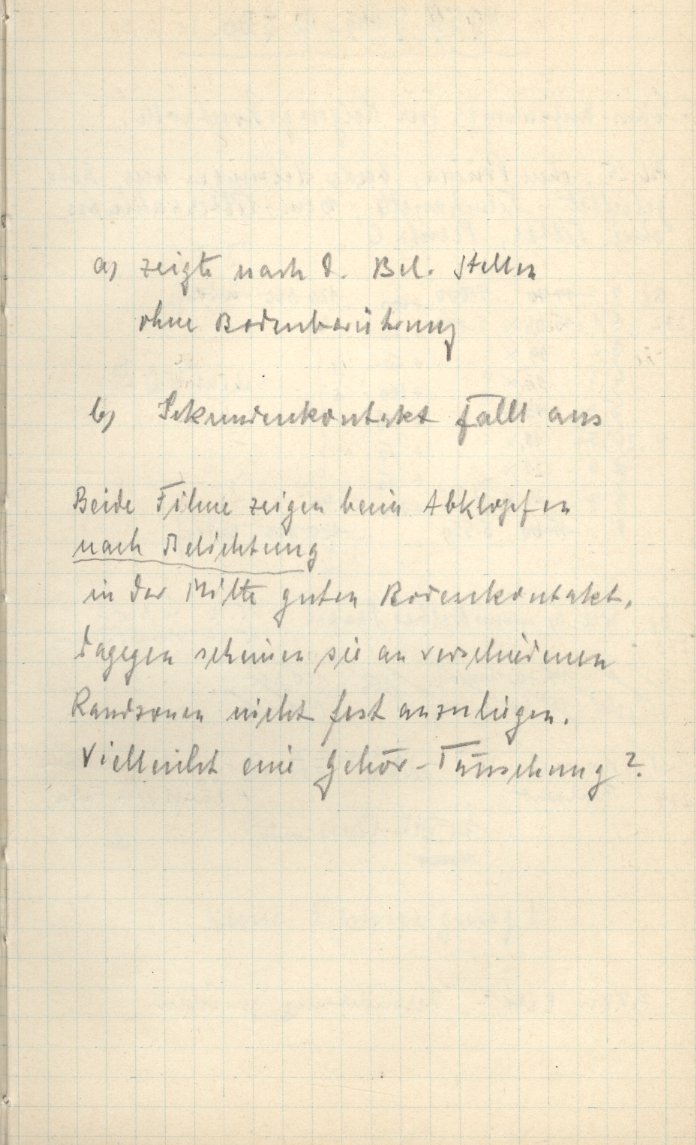 a) zeigte nach d. Bel. Stellen
ohne Bodenberührung
b) Sekundenkontakt fällt aus
Beide Filme zeigen beim Abklopfen
nach Belichtung
in der Mitte guten Bodenkontakt,
dagegen scheinen sie an verschiedenen
Randzonen nicht fest anzuliegen.
Vielleicht eine Gehör-Täuschung?